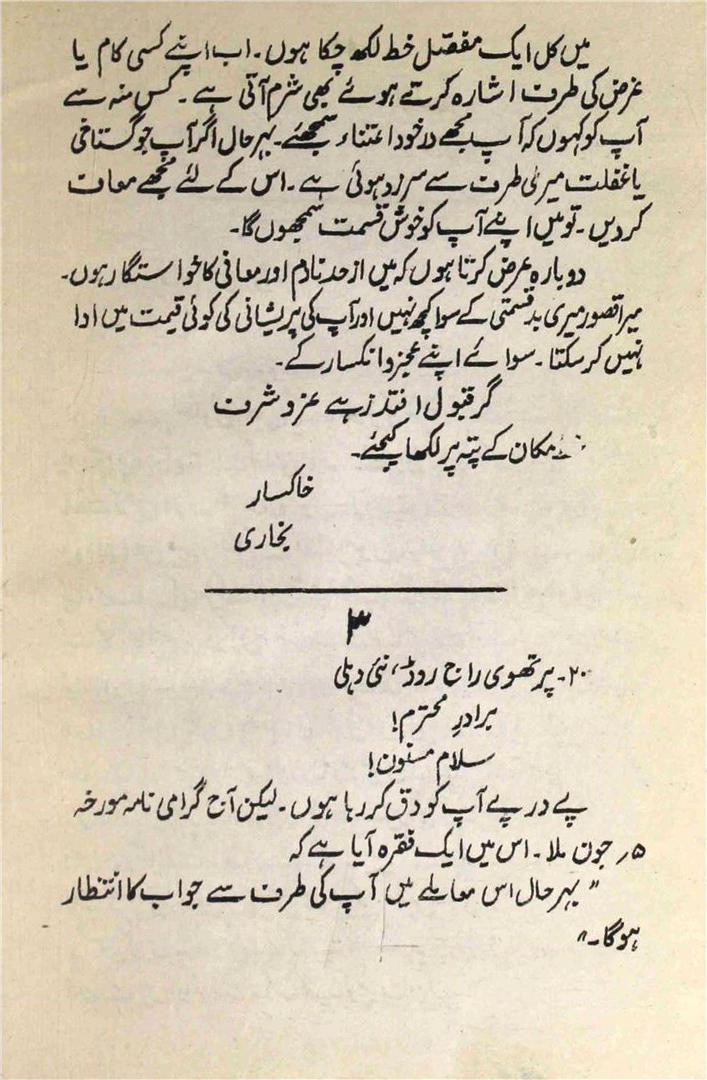 میں کل ایک مفصل خط لکھ چکا ہوں۔ اب اپنے کسی کام یا
غرض کی طرف اشارہ کرتے ہوئے بھی شرم آتی ہے۔ کس منہ سے
آپ کو کہوں کہ آپ مجھے درخود اعتناء سمجھئے۔ بہرحال اگر آپ جو گستاخی
یا غفلت میری طرف سے سرزد ہوئی ہے۔ اس کے لئے مجھے معاف
کر دیں۔ تو میں اپنے آپ کو خوش قسمت سمجھوں گا۔
دوبارہ عرض کرتا ہوں کہ میں از حد نادم اور معافی کا خواستگار ہوں۔
میرا قصور میری بدقسمتی کے سوا کچھ نہیں اور آپ کی پریشانی کی کوئی قیمت میں ادا
نہیں کر سکتا۔ سوائے اپنے عجز و انکسار کے۔
گر قبول افتد زہے عز و شرف
مکان کے پتہ پر لکھا کیجئے۔
خاکسار
بخاری
۳
۲۰۔ پرتھوی راج روڈ، نئی دہلی
برادرِ محترم!
سلام مسنون!
پے در پے آپ کو دق کر رہا ہوں۔ لیکن آج گرامی نامہ مورخہ
۵؍ جون ملا۔ اس میں ایک فقرہ آیا ہے کہ
"بہرحال اس معاملے میں آپ کی طرف سے جواب کا انتظار
ہوگا۔"